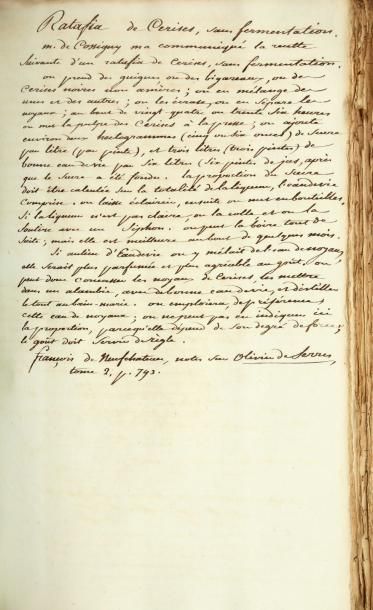 Ratafia de Cerises, sans fermentation.
m. de Cossigny m'a communiqué la recette
suivante d'un ratafia de Cerises, sans fermentation.
on prend des guignes ou des bigareaux, ou de
Cerises noires non amères; ou en mélange des
unes et des autres; on les écrase, on en sépare les
noyaux; au bout de vingt quatre ou trente six heures
on met la pulpe des Cerises à la presse; on ajoute
environ deux hectogrammes (cinq ou six onces) de Sucre
par litre (par pinte), et trois litres (trois pintes) de
bonne eau de vie par Six litres (Six pintes) de jus, après
que le Sucre a été fondu. la proportion du Sucre
doit être calculée sur la totalité de la liqueur, l'eau de vie
Comprise. on laisse éclaircir, ensuite on met en bouteilles.
Si la liqueur n'est pas claire, on la colle et on la
Soutire avec un Siphon. on peut la boire tout de
Suite; mais elle est meilleure au bout de quelques mois.
Si au lieu d'Eau de vie on y mêlait de l'eau de noyaux,
elle Serait plus parfumée et plus agréable au goût. on
peut donc concasser les noyaux de Cerises les mettre
dans un alambic, avec de bonne eau de vie, et distiller
le tout au bain-marie. on emploiera de préférence
cette eau de noyaux; on ne peut pas en indiquer ici
la proportion, parcequ'elle dépend de Son degré de force;
le goût doit Servir de règle.
françois de Neufchateau, notes sur Olivier de Serres,
tome 2, p. 793.